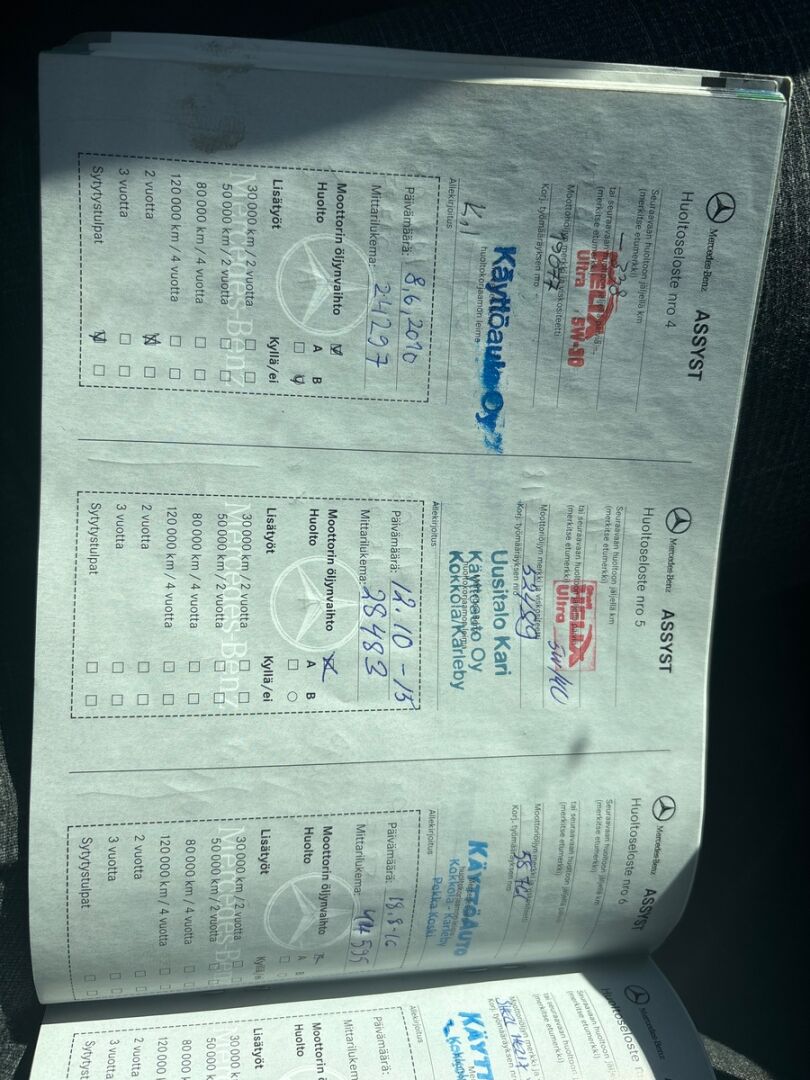 Mercedes-Benz
ASSYST
Huoltoseloste nro 4
Seuraavaan huoltoon jäljellä km
(merkitse etumerkki)
— 328
tai seuraavaan
(merkitse etumerkki)
HELIX
Ultra 5W-30
Moottoriöljyn merkki
Korj. työmääräyksen nro
Käyttöauto Oy
huoltokorjaamon leima
Allekirjoitus
Päivämäärä: 8,6,2010
Mittarilukema: 24297
Moottorin öljynvaihto
Huolto A B
Lisätyöt Kyllä/ei
30 000 km / 2 vuotta
50 000 km / 2 vuotta
80 000 km / 4 vuotta
120 000 km / 4 vuotta
2 vuotta
3 vuotta
Sytytystulpat
Mercedes-Benz
Mercedes-Benz
ASSYST
Huoltoseloste nro 5
Seuraavaan huoltoon jäljellä km
(merkitse etumerkki)
tai seuraavaan huoltoon
(merkitse etumerkki)
HELIX
Ultra 5W/40
Moottoriöljyn merkki ja viskositeetti
Korj. työmääräyksen nro
Uusitalo Kari
Käyttöauto Oy
huoltokorjaamon leima
Kokkola/Karleby
Allekirjoitus
Päivämäärä: 12.10-15
Mittarilukema: 28483
Moottorin öljynvaihto
Huolto A B
Lisätyöt Kyllä/ei
30 000 km / 2 vuotta
50 000 km / 2 vuotta
80 000 km / 4 vuotta
120 000 km / 4 vuotta
2 vuotta
3 vuotta
Sytytystulpat
Mercedes-Benz
Mercedes-Benz
ASSYST
Huoltoseloste nro 6
Seuraavaan huoltoon jäljellä km
(merkitse etumerkki)
tai seuraavaan huoltoon jäljellä
(merkitse etumerkki)
Moottoriöljyn merkki
Korj. työmääräyksen nro
KÄYTTÖAUTO
Kokkola - Karleby
Pekka Koski
Allekirjoitus
Päivämäärä: 18.8-16
Mittarilukema: 44595
Moottorin öljynvaihto
Huolto A B
Lisätyöt
30 000 km / 2 vuotta
50 000 km / 2 vuotta
80 000 km / 4 vuotta
120 000 km / 4 vuotta
2 vuotta
3 vuotta
Sytytystulpat
Mercedes-Benz
Mercedes-Benz
Huoltoseloste
Seuraavaan huoltoon
(merkitse etumerkki)
tai seuraavaan huoltoon
(merkitse etumerkki)
Moottoriöljyn merkki ja
Korj. työmääräyksen nro
KÄYTT
Allekirjoitus
Päivämäärä:
Mittarilukem
Moottorin
Huolto
Lisätyöt
30 000 km
50 000 km
80 000 k
120 000
2 vuott
3 vuot
Sytyty